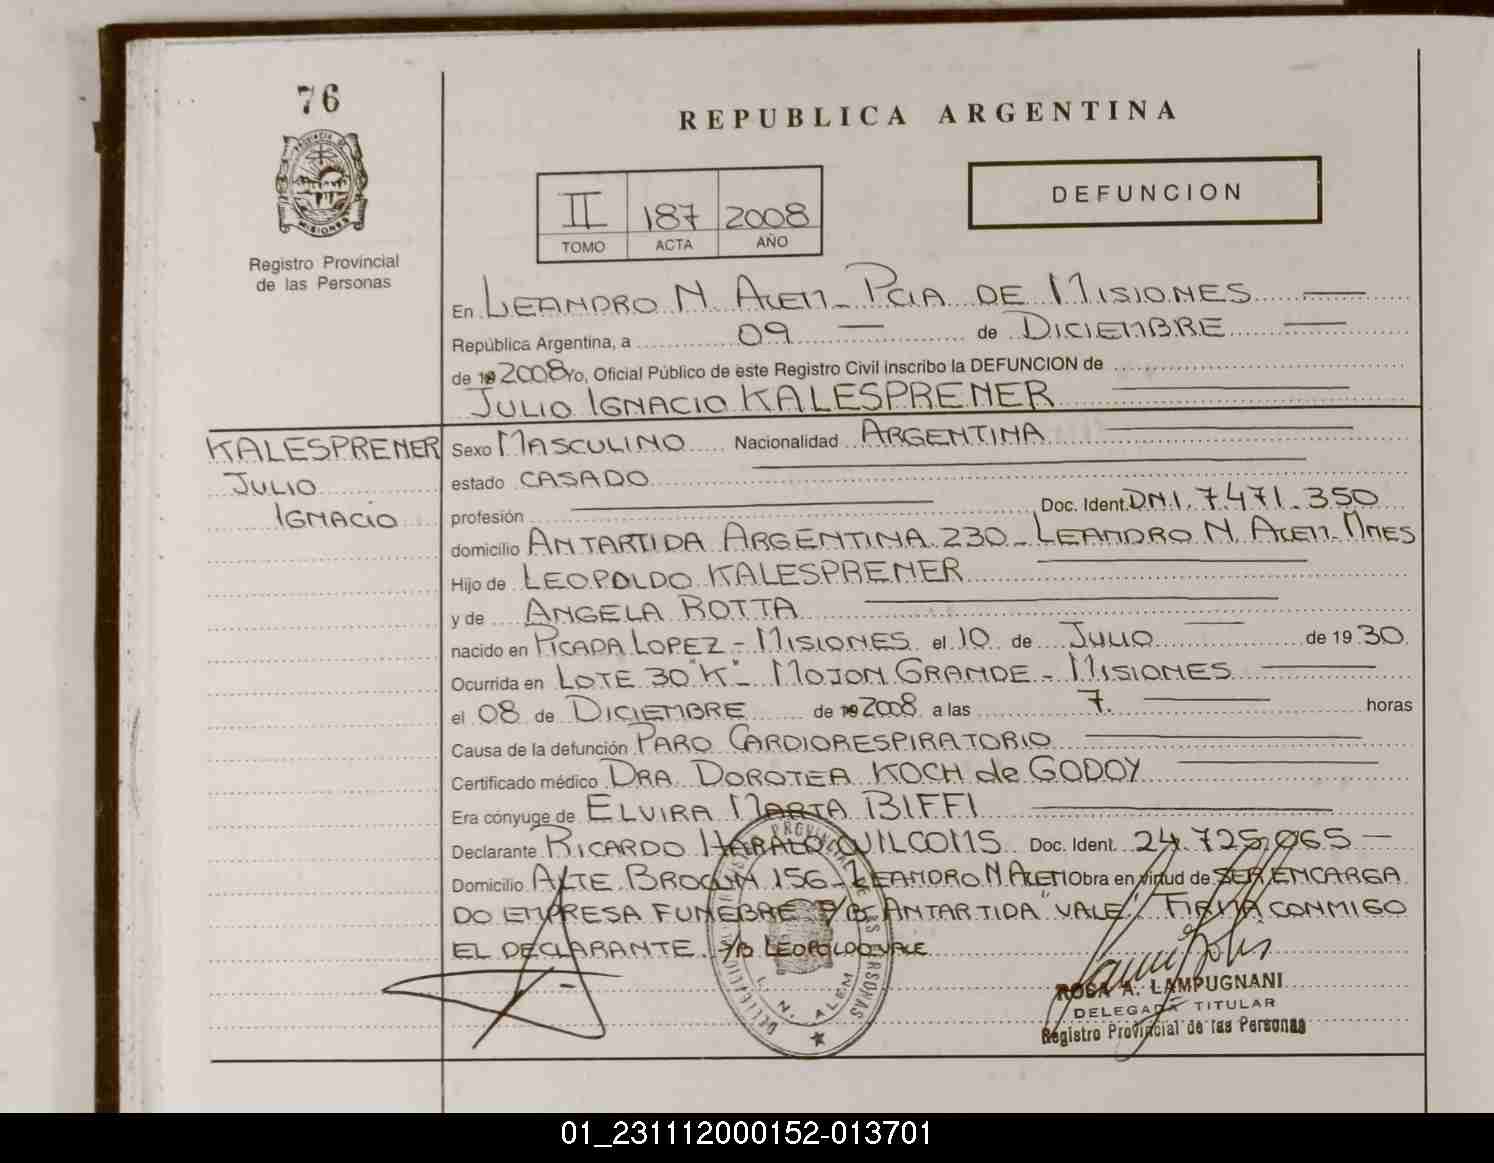 76
PROVINCIA DE
MISIONES
Registro Provincial
de las Personas
REPUBLICA ARGENTINA
II 187 2008
TOMO ACTA AÑO
DEFUNCION
En LEANDRO N. ALEM - PCIA DE MISIONES
República Argentina, a 09 de DICIEMBRE
de 19 2008 Yo, Oficial Público de este Registro Civil inscribo la DEFUNCION de
JULIO IGNACIO KALESPRENER
KALESPRENER
JULIO
IGNACIO
Sexo MASCULINO Nacionalidad ARGENTINA
estado CASADO
profesión Doc. Ident. D.N.I. 7.471.350
domicilio ANTARTIDA ARGENTINA 230 - LEANDRO N. ALEM - MNES
Hijo de LEOPOLDO KALESPRENER
y de ANGELA ROTTA
nacido en PICADA LOPEZ - MISIONES el 10 de JULIO de 1930
Ocurrida en LOTE 30 "K" - MOJON GRANDE - MISIONES
el 08 de DICIEMBRE de 19 2008 a las 7. horas
Causa de la defunción PARO CARDIORESPIRATORIO
Certificado médico DRA. DOROTEA KOCH de GODOY
Era cónyuge de ELVIRA MARTA BIFFI
Declarante RICARDO HARALD QUILCOMS Doc. Ident. 24.725.065
Domicilio ALTE BROWN 156 - LEANDRO N. ALEM Obra en virtud de SER ENCARGA
DO EMPRESA FUNEBRE F/B ANTARTIDA "VALE". FIRMA CONMIGO
EL DECLARANTE. F/B LEOPOLDO VALE
L. N. ALEM
ROSA A. LAMPUGNANI
DELEGADA TITULAR
Registro Provincial de las Personas
01_231112000152-013701